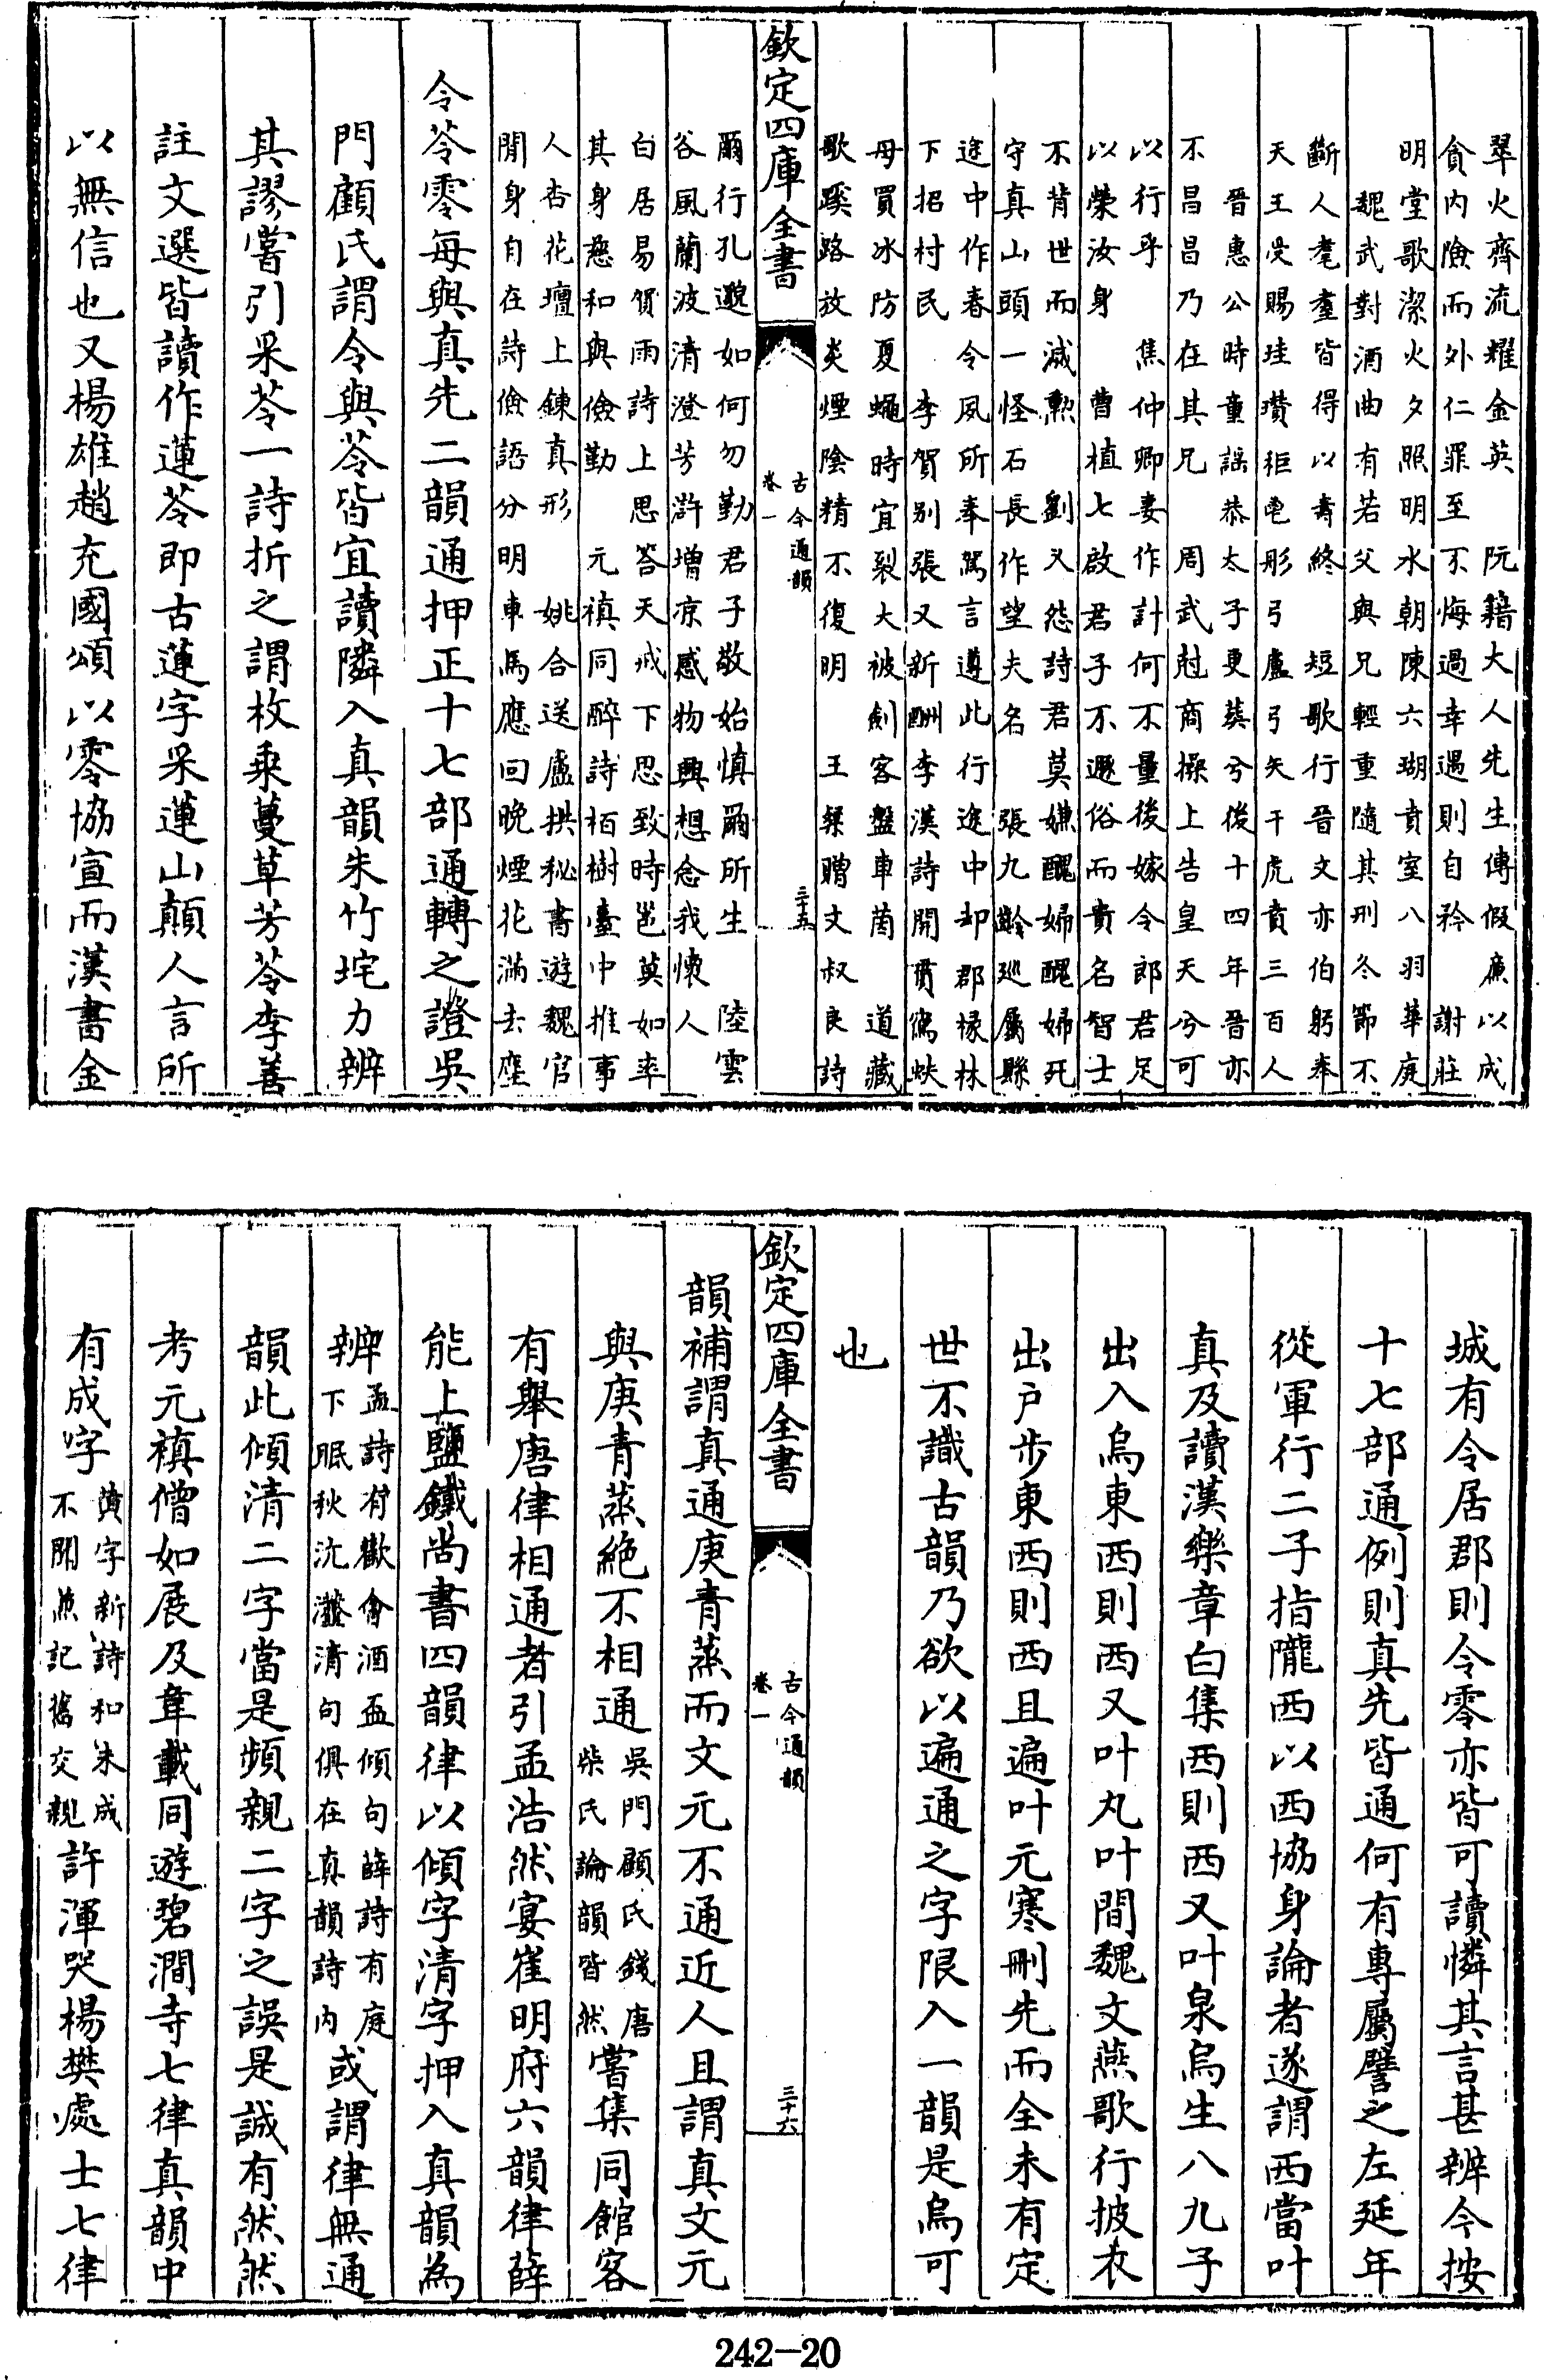 翠火齊流耀金英　阮籍大人先生傳假廉以成
貪内險而外仁罪至不悔過幸遇則自矜　謝莊
明堂歌潔火夕照明水朝陳六瑚賁室八羽華庭
魏武對酒曲有若父與兄輕重隨其刑冬節不
斷人耄耋皆得以壽終　短歌行晉文亦伯躬奉
天王受賜珪瓚秬鬯彤弓盧弓矢千虎賁三百人
晉惠公時童謡恭太子更葬兮後十四年晉亦
不昌昌乃在其兄　周武尅商操上告皇天兮可
以行乎　焦仲卿妻作計何不量後嫁令郎君足
以榮汝身　曹植七啟君子不遯俗而貴名智士
不背世而滅勲　劉乂怨詩君莫嫌醜婦醜婦死
守真山頭一怪石長作望夫名　張九齡巡屬縣
途中作春令夙所奉駕言遵此行途中却郡掾林
下招村民　李賀别張又新酬李漢詩開貫瀉蚨
母買冰防夏蠅時宜裂大被劍客盤車茵　道藏
歌蹊路放炎煙陰精不復明　王粲贈文叔良詩
欽定四庫全書
古今通韻
卷一
三十五
爾行孔邈如何勿勤君子敬始慎爾所生　陸雲
谷風蘭波清澄芳滸增凉感物興想念我懐人
白居易賀雨詩上思答天戒下思致時邕莫如率
其身慈和與儉勤　元稹同醉詩栢樹臺中推事
人杏花壇上鍊真形　姚合送盧拱秘書遊魏官
閒身自在詩儉語分明車馬應回晚煙花滿去塵
令苓零每與真先二韻通押正十七部通轉之證吳
門顧氏謂令與苓皆宜讀隣入真韻朱竹垞力辨
其謬嘗引采苓一詩折之謂枚乘蔓草芳苓李善
註文選皆讀作蓮苓即古蓮字采蓮山顛人言所
以無信也又楊雄趙充國頌以零協宣而漢書金
城有令居郡則令零亦皆可讀憐其言甚辨今按
十七部通例則真先皆通何有專屬譬之左延年
從軍行二子指隴西以西協身論者遂謂西當叶
真及讀漢樂章白集西則西又叶泉烏生八九子
出入烏東西則西又叶丸叶間魏文燕歌行披衣
出户步東西則西且遍叶元寒刪先而全未有定
世不識古韻乃欲以遍通之字限入一韻是烏可
也
欽定四庫全書
古今通韻
卷一
三十六
韻補謂真通庚青蒸而文元不通近人且謂真文元
與庚青蒸絶不相通吳門顧氏錢唐柴氏論韻皆然嘗集同館客
有舉唐律相通者引孟浩然宴崔明府六韻律薛
能上鹽鐵尚書四韻律以傾字清字押入真韻為
辨孟詩有歡會酒盃傾句薛詩有庭下眠秋沆瀣清句俱在真韻詩内或謂律無通
韻此傾清二字當是頻親二字之誤是誠有然然
考元稹僧如展及韋載同遊碧澗寺七律真韻中
有成字黄字新詩和未成不閒無記舊交親許渾哭楊樊處士七律
242-20